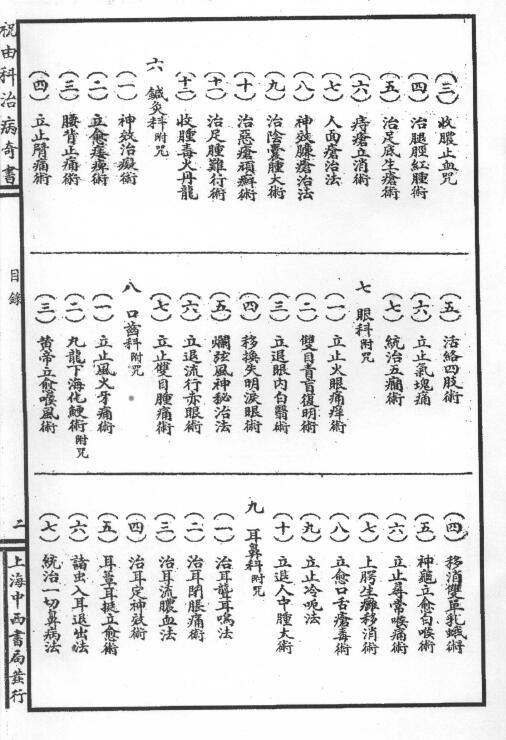 祝由科治病奇書
目錄
二
上海中西書局發行
(三) 收膿止血咒
(四) 治腿脛紅腫術
(五) 治足底生瘡術
(六) 痔瘡立消術
(七) 人面瘡治法
(八) 神效臁瘡治法
(九) 治陰囊腫大術
(十) 治惡瘡頑癬術
(十一) 治足腫難行術
(十二) 收腫毒火丹龍
六 鍼灸科附咒
(一) 神效治癡術
(二) 立愈痿痺術
(三) 腰背止痛術
(四) 立止臂痛術
(五) 活絡四肢術
(六) 立止氣塊痛
(七) 統治五癇術
七 眼科附咒
(一) 立止火眼痛痒術
(二) 雙目青盲復明術
(三) 立退眼內白翳術
(四) 移換失明淚眼術
(五) 爛弦風神秘治法
(六) 立退流行赤眼術
(七) 立止雙目腫痛術
八 口齒科附咒
(一) 立止風火牙痛術
(二) 九龍下海化鯁術附咒
(三) 黃帝立愈喉風術
(四) 移消雙單乳蛾術
(五) 神龜立愈白喉術
(六) 立止尋常喉痛術
(七) 上腭生癰移消術
(八) 立愈口舌瘡毒術
(九) 立止冷呃法
(十) 立退人中腫大術
九 耳鼻科附咒
(一) 治耳聾耳鳴法
(二) 治耳閉脹痛術
(三) 治耳流膿血法
(四) 治耳定神效術
(五) 耳蕈耳挺立愈術
(六) 諸虫入耳退出法
(七) 統治一切鼻病法